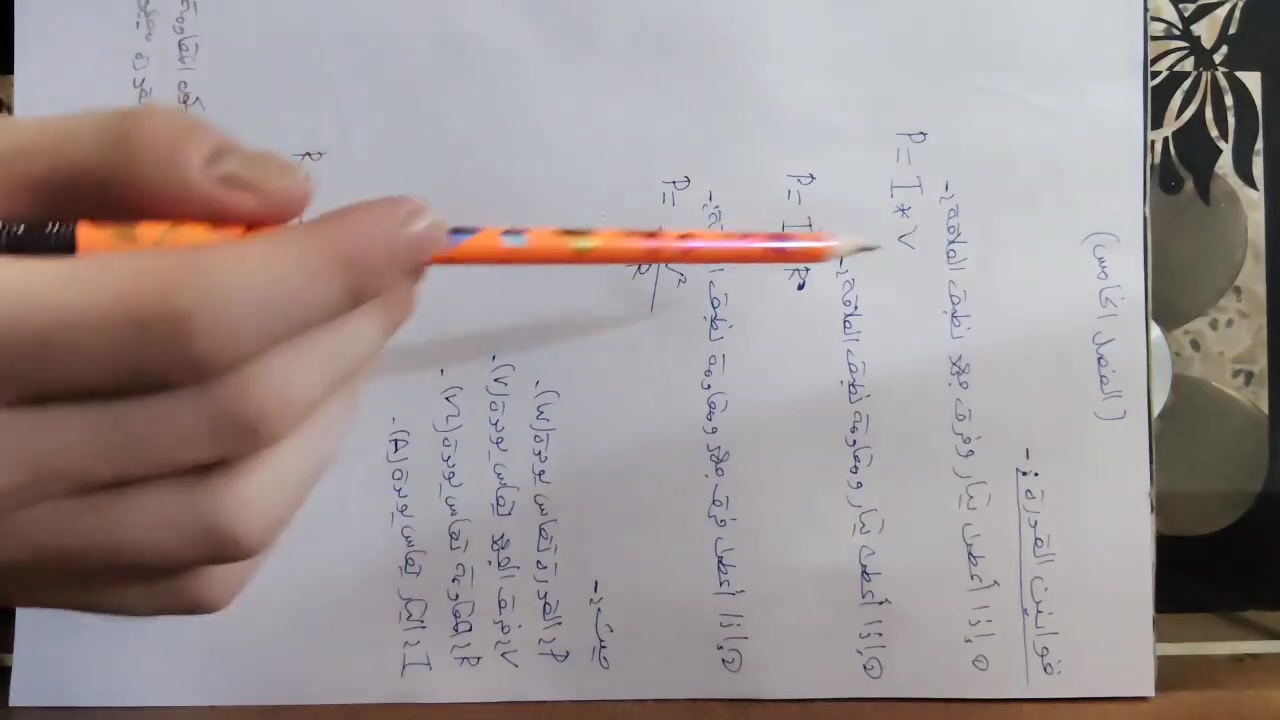 (الفصل الخامس)
قوانين القدرة :-
① إذا أعطى تيار وفرق جهد نطبق العلاقة :-
P = I * V
② إذا أعطى تيار ومقاومة نطبق العلاقة :-
P = I
③ إذا أعطى فرق جهد ومقاومة نطبق
P =
حيث :-
P : القدرة تقاس بوحدة (W).
V : فرق الجهد تقاس بوحدة (V).
R : المقاومة تقاس بوحدة (Ω).
I : التيار تقاس بوحدة (A).